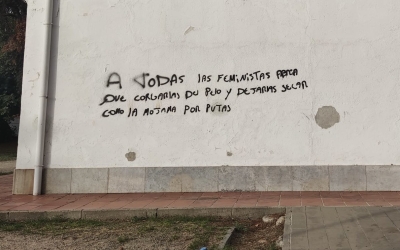 A TODAS LAS FEMINISTAS
QUE COLGARLAS DU PELO Y DEJARLAS SECAR
COMO LA MOJAMA POR PUTAS